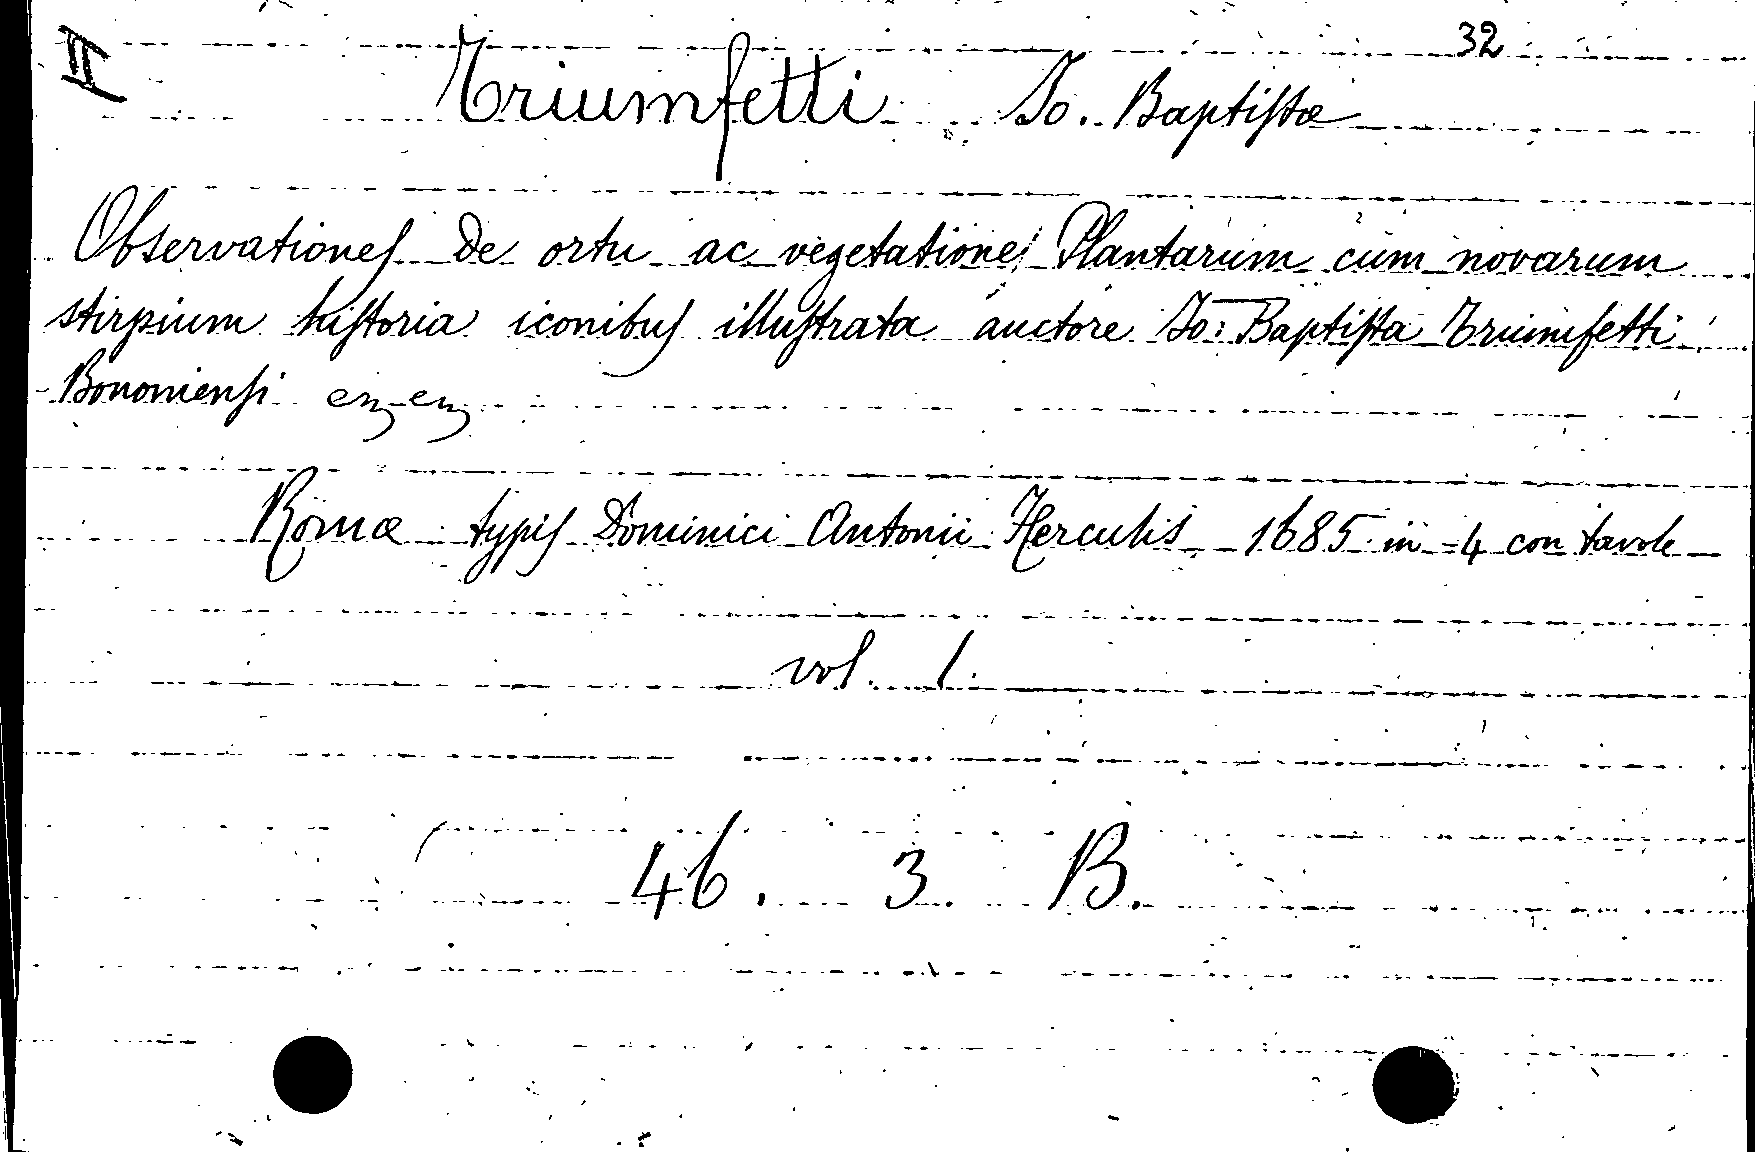 II
32
Triumfetti Io. Baptistæ
Observationes de ortu ac vegetatione Plantarum cum novarum
stirpium historia iconibus illustrata auctore Io: Baptista Triumfetti
Bononiensi
Romæ typis Dominici Antonii Herculis 1685 in 4 con tavole
vol. 1.
46. 3. B.